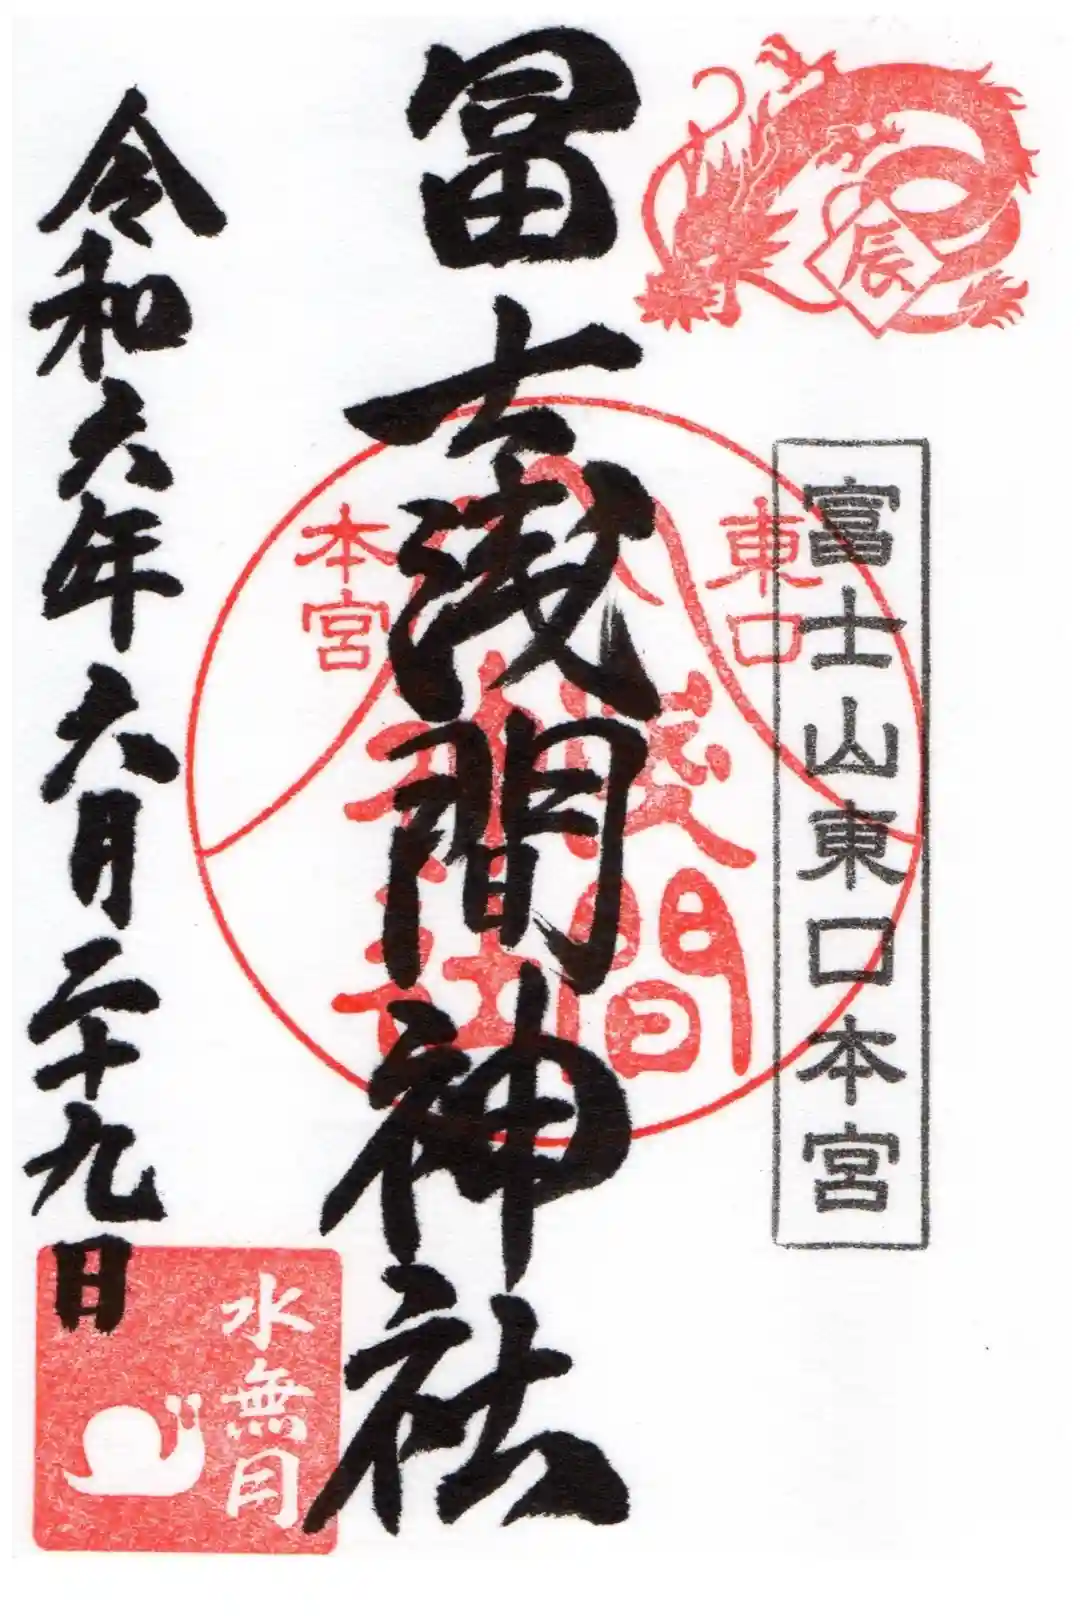 辰
富士山東口本宮
冨士浅間神社
東口
本宮
浅間
神社
令和六年六月二十九日
水無月